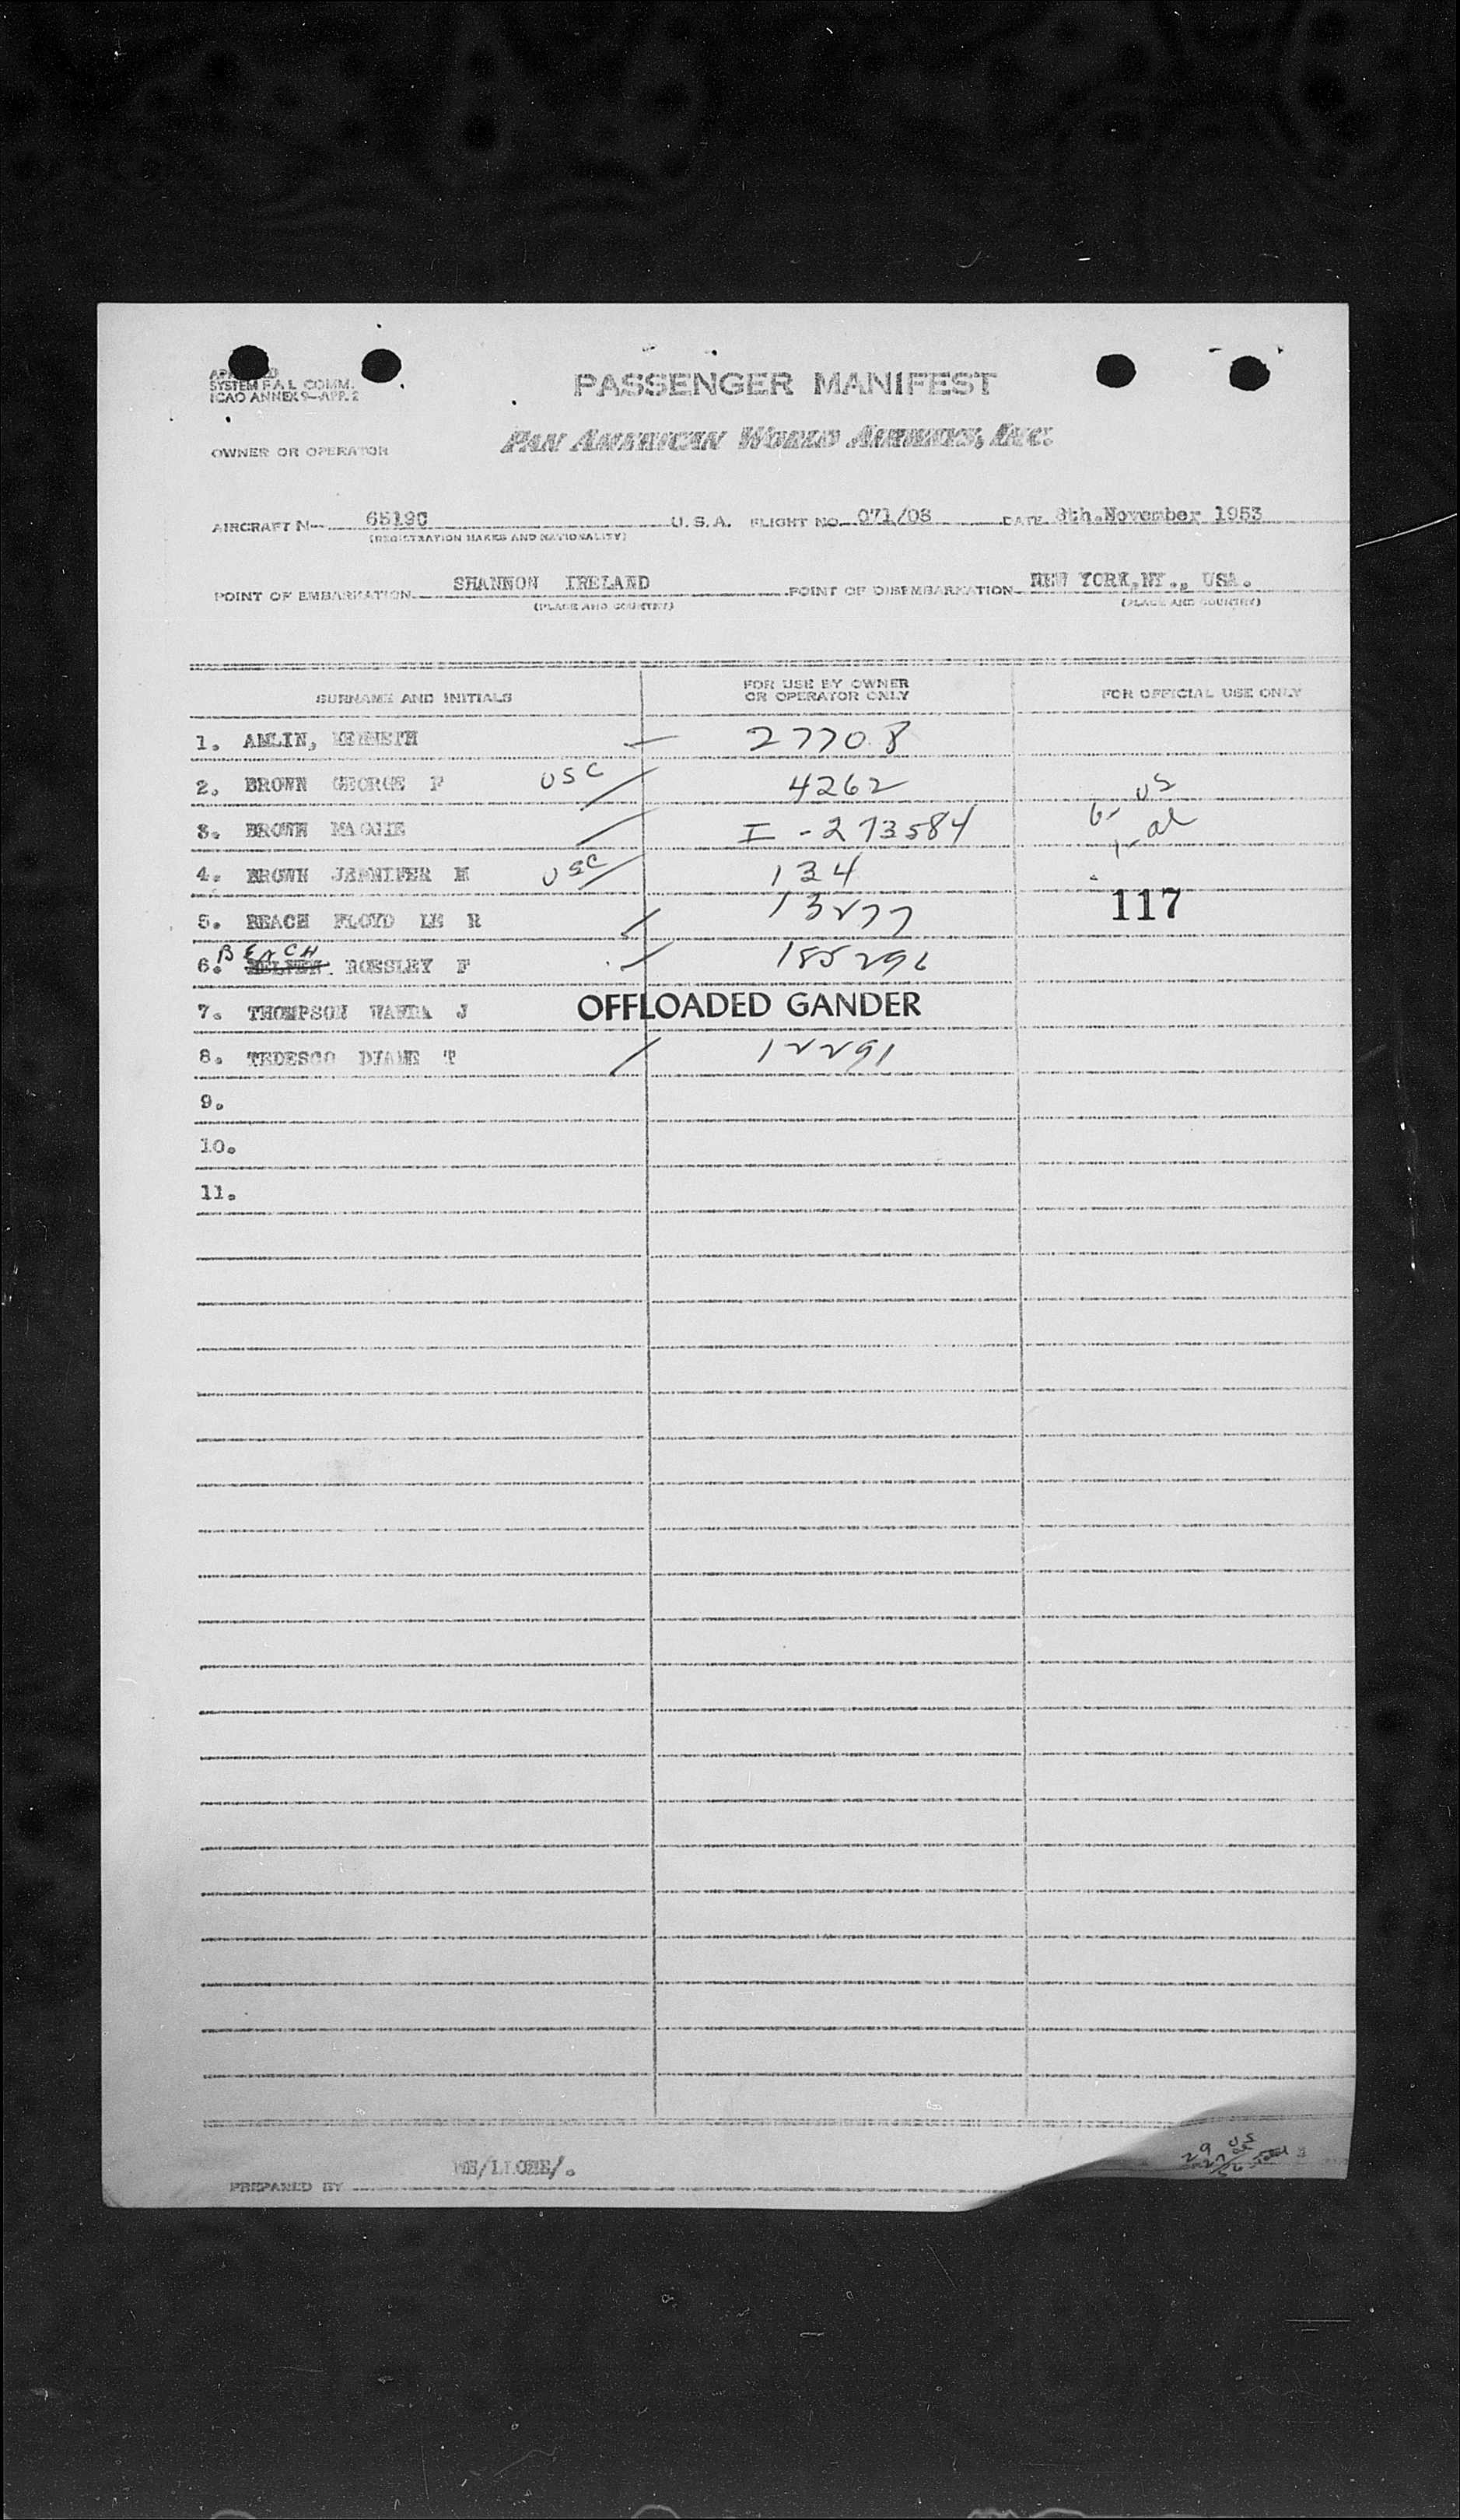 SYSTEM F.A.L. COMM.
ICAO ANNEX 9-APP. 2
PASSENGER MANIFEST
OWNER OR OPERATOR
PAN AMERICAN WORLD AIRWAYS, INC.
AIRCRAFT N- 6519C U. S. A. FLIGHT NO. 071/08 DATE 8th.November 1953
(REGISTRATION MARKS AND NATIONALITY)
POINT OF EMBARKATION SHANNON IRELAND POINT OF DISEMBARKATION NEW YORK,NY., USA.
(PLACE AND COUNTRY) (PLACE AND COUNTRY)
SURNAME AND INITIALS FOR USE BY OWNER OR OPERATOR ONLY FOR OFFICIAL USE ONLY
1. AMLIN, KENNETH 27708
2. BROWN GEORGE F USC 4262 6- US
3. BROWN MAGGIE I-273584 1- al
4. BROWN JENNIFER M USC 134
5. BEACH FLOYD LE R 13277 117
BEACH
6. ROSSLEY F 185296
7. THOMPSON WANDA J OFFLOADED GANDER
8. TEDESCO DIANE T 12291
9.
10.
11.
29 US
27 al
56 Total
PREPARED BY